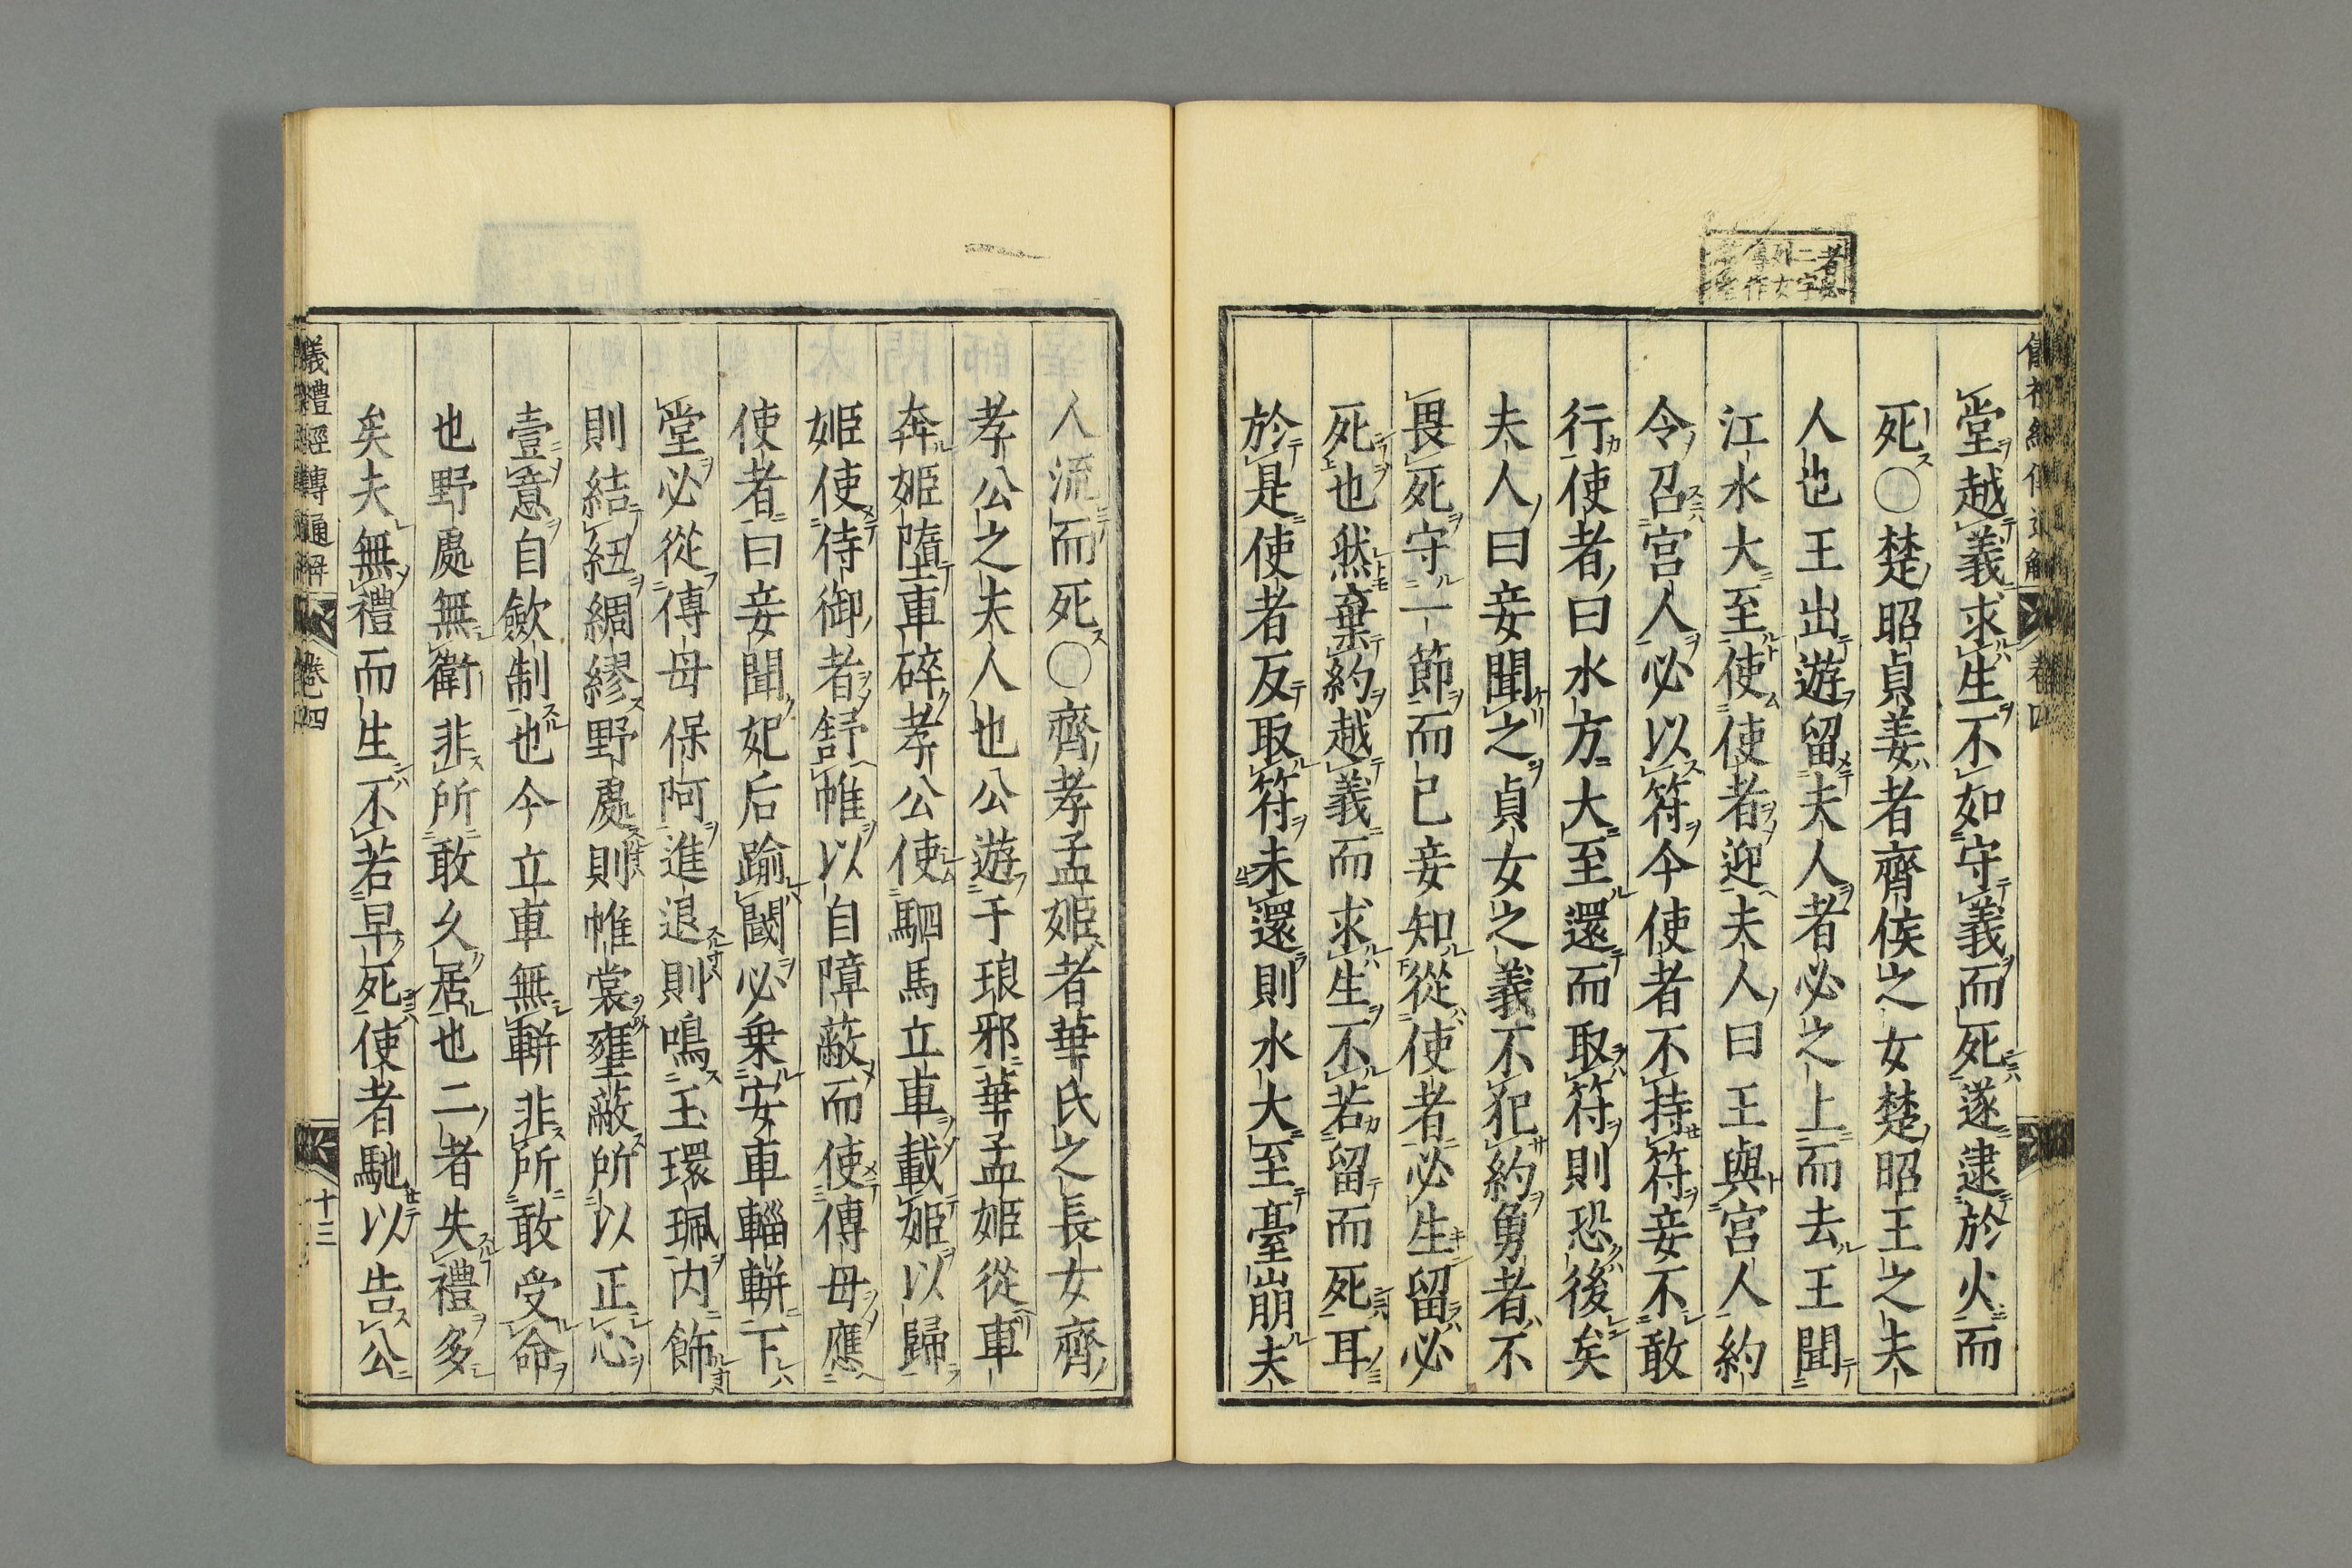 堂越義求生不如守義而死遂逮於火而
死〇楚昭貞姜者齊侯之女楚昭王之夫
人也王出遊留夫人者必之上而去王聞
江水大至使使者迎夫人曰王與宮人約
令召宮人必以符今使者不持符妾不敢
行使者曰水方大至還而取符則恐後矣
夫人曰妾聞之貞女之義不犯約勇者不
畏死守一節而已妾知從使者必生留必
死也然棄約越義而求生不若留而死耳
於是使者反取符未還則水大至臺崩夫
人流而死〇齊孝孟姬者華氏之長女齊
孝公之夫人也公遊于琅邪華孟姬從車
奔姬墮車碎孝公使駟馬立車載姬以歸
姬使侍御者舒帷以自障蔽而使傅母應
使者曰妾聞妃后踰閾必乗安車輜軿下
堂必從傅母保阿進退則鳴玉環珮内飾
則結紐綢繆野處則帷裳壅蔽所以正心
壹意自斂制也今立車無軿非所敢受命
也野處無衛非所敢久居也二者失禮多
矣夫無禮而生不若早死使者馳以告公
儀禮經傳通解
卷四
十三